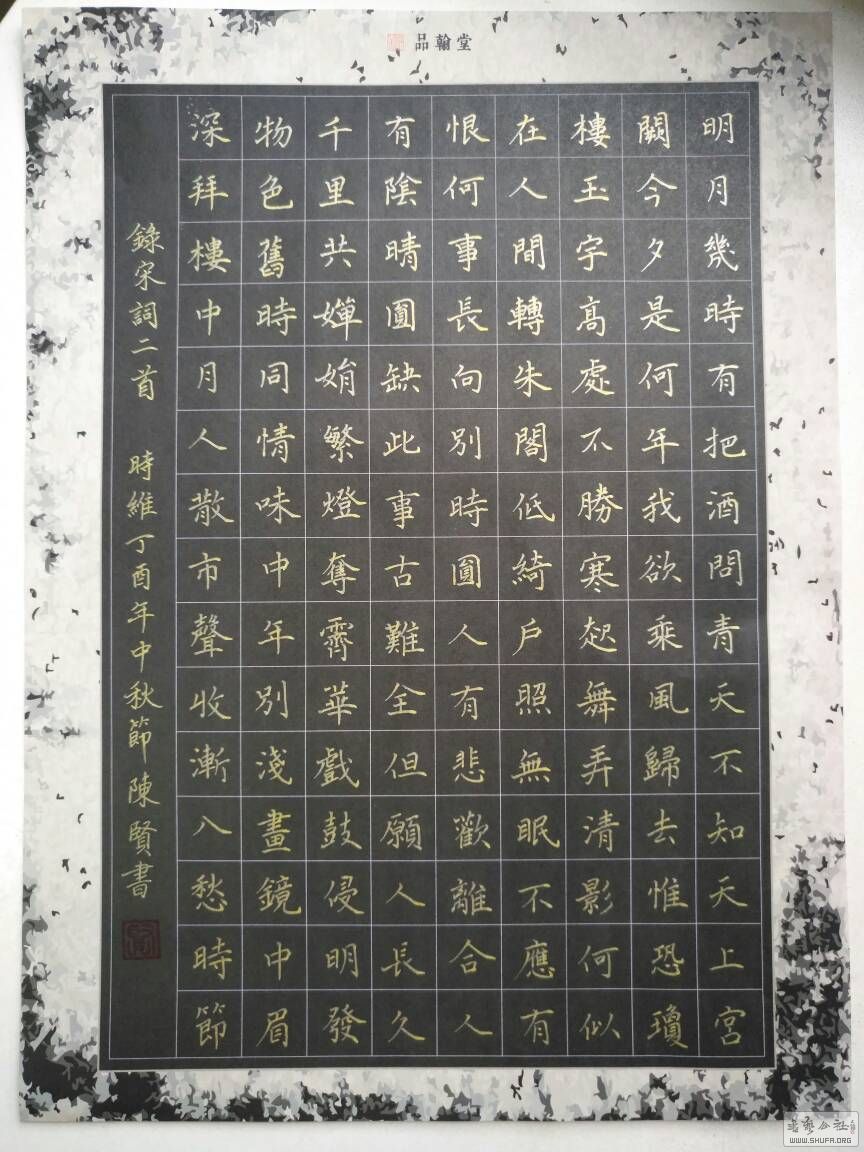 品翰堂
明月幾時有把酒問青天不知天上宮
闕今夕是何年我欲乘風歸去惟恐瓊
樓玉宇高處不勝寒起舞弄清影何似
在人間轉朱閣低綺戶照無眠不應有
恨何事長向別時圓人有悲歡離合人
有陰晴圓缺此事古難全但願人長久
千里共嬋娟繁燈奪霽華戲鼓侵明發
物色舊時同情味中年別淺畫鏡中眉
深拜樓中月人散市聲收漸入愁時節
錄宋詞二首 時維丁酉年中秋節陳賢書
WWW.SHUFA.ORG